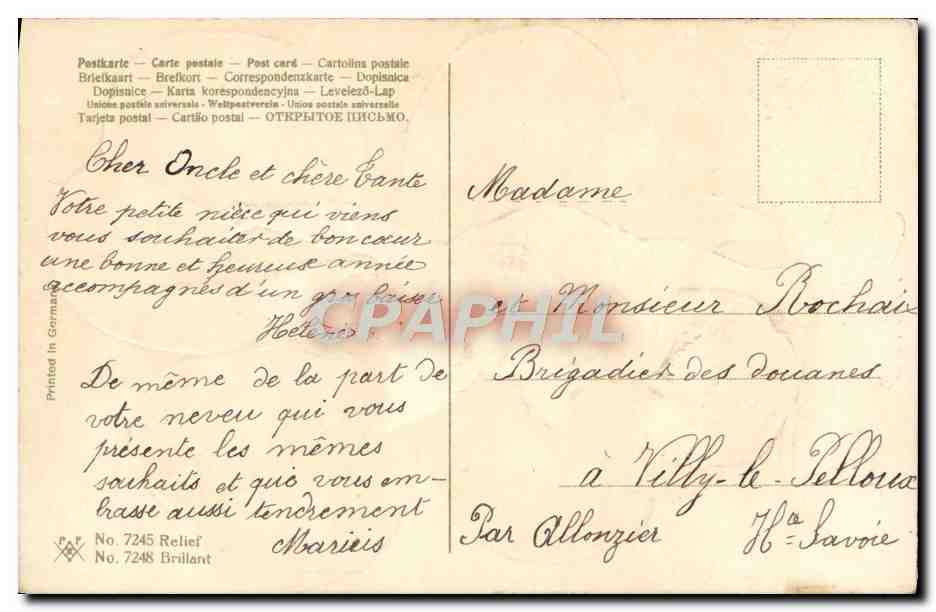 Postkarte — Carte postale — Post card — Cartolina postale
Briefkaart — Brefkort — Correspondenzkarte — Dopisnica
Dopisnice — Karta korespondencyjna — Levelező-Lap
Unione postale universale - Weltpostverein - Union postale universelle
Tarjeta postal — Cartão postal — ОТКРЫТОЕ ПИСЬМО.
Cher Oncle et chère Tante
Votre petite nièce qui viens
vous souhaiter de bon cœur
une bonne et heureuse année
accompagnés d'un gros baiser
De même de la part de
votre neveu qui vous
présente les mêmes
souhaits et que vous em-
brasse aussi tendrement
Printed in Germany
No. 7245 Relief
No. 7248 Brillant
Madame
et Monsieur Rochaix
Brigadier des douanes
à Villy-le-Pelloux
Par Allonzier Hte Savoie
CPAPHIL